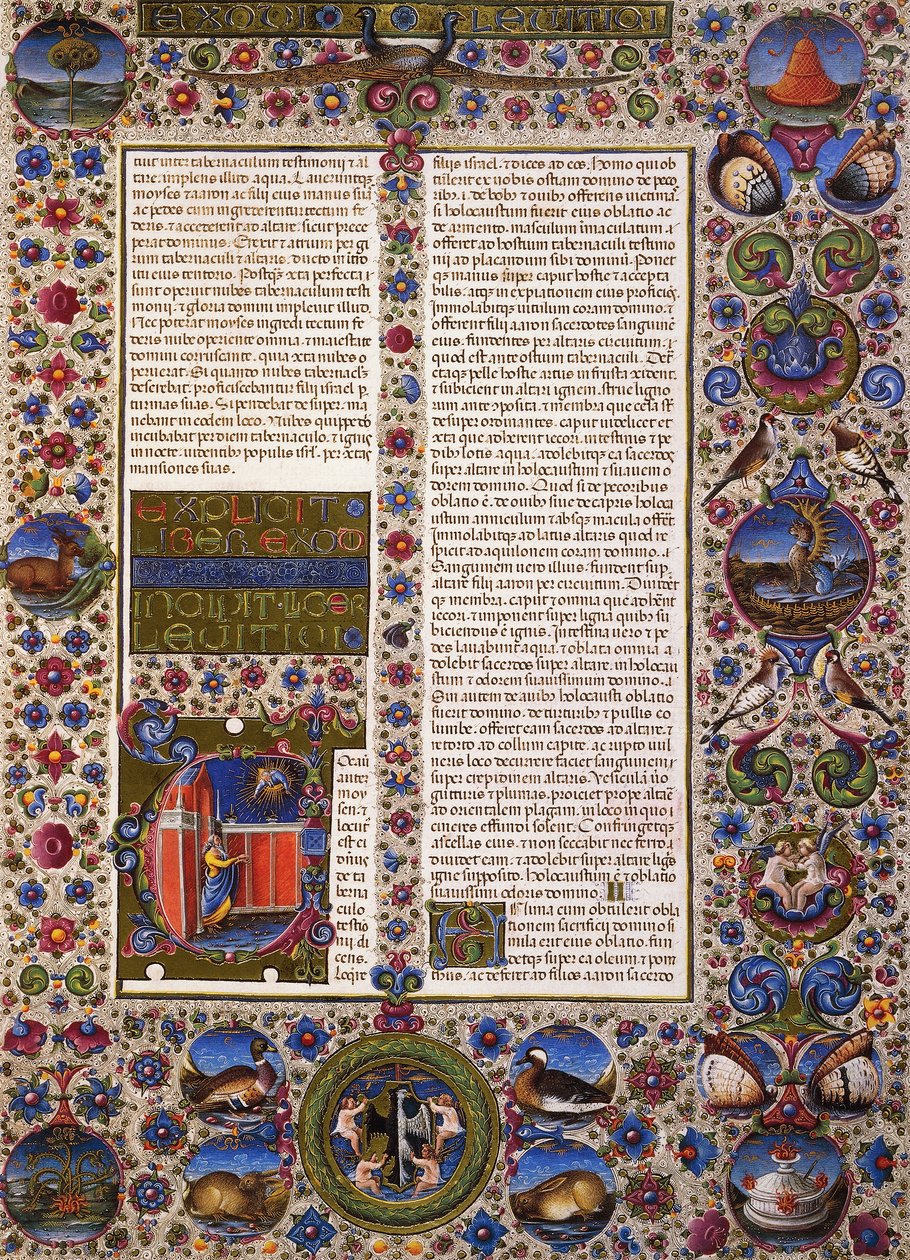 EXODI LEVITICI
tuit inter tabernaculum testimonii ⁊ al
tare. implens illud aqua. Laueruntqꝫ
moyses ⁊ aaron ac filii eius manus suas
ac pedes cum ingrederentur tectum fe
deris. ⁊ accederent ad altare. sicut prece
perat dominus. Erexit ⁊ atrium per gi
rum tabernaculi ⁊ altaris. ducto in itro
itu eius tentorio. Postqꝫ cuncta perfecta
sunt operuit nubes tabernaculum testi
monij. ⁊ gloria domini impleuit illud.
Nec poterat moyses ingredi tectum fe
deris nube operiente omnia. ⁊ maiestate
domini coruscante. quia cuncta nubes o
peruerat. Si quando nubes tabernaculum
deserebat. proficiscebantur filii israel p
turmas suas. Si pendebat desuper. ma
nebant in eodem loco. Nubes quippe domini
incubabat per diem tabernaculo. ⁊ ignis
in nocte. uidentibus populis isrl. per cunctas
mansiones suas.
EXPLICIT
LIBER EXOD
INCIPIT LIBER
LEVITICI
Ocauit
autem
moy
sen. ⁊
locut
est ei
dnus
de ta
berna
culo
testio
nij di
cens.
Loqre
filijs israel. ⁊ dices ad eos. Homo qui ob
tulerit ex uobis ostiam domino de peco
ribus. i. de bobus ⁊ ouibus offerens uictimas.
si holocaustum fuerit eius oblatio ac
de armento. masculum inmaculatum
offeret ad hostium tabernaculi testimo
nij ad placandum sibi dominum. Ponet
qꝫ manus super caput hostie ⁊ accepta
bilis. atqꝫ in expiationem eius proficiens.
Immolabitqꝫ uitulum coram domino. ⁊
offerent filij aaron sacerdotes sanguinem
eius. fundentes per altaris circuitum.
quod est ante ostium tabernaculi. Detra
ctaqꝫ pelle hostie artus in frusta cident.
⁊ subicient in altari ignem. strue ligno
rum ante composita. ⁊ membra que cesa sunt
desuper ordinantes. caput uidelicet et
cuncta que adherent iecori. intestinis ⁊ pe
dibus lotis aqua. ⁊ adolebitqꝫ ea sacerdos
super altare in holocaustum ⁊ suauem o
dorem domino. Quod si de pecoribus
oblatio est. de ouibus siue de capris holoca
ustum anniculum ⁊ absqꝫ macula offeret.
Immolabitqꝫ ad latus altaris quod re
spicit ad aquilonem coram domino.
Sanguinem uero illius. fundent sup
altare filij aaron per circuitum. Diuident
qꝫ membra. caput ⁊ omnia que adherent
iecori. ⁊ imponent super ligna quibus su
biciendus est ignis. Intestina uero ⁊ pe
des lauabunt aqua. ⁊ oblata omnia a
dolebit sacerdos super altare. in holocau
stum ⁊ odorem suauissimum domino.
Sin autem de auibus holocausti oblatio
fuerit domino. de turturibus ⁊ pullis co
lumbe. offeret eam sacerdos ad altare. ⁊
retorto ad collum capite. ac rupto uul
neris loco decurrere faciet sanguinem
super crepidinem altaris. Vesiculam uero
gutturis ⁊ plumas. proiciet prope altare
ad orientalem plagam. in loco in quo
cineres effundi solent. Confringetqꝫ
ascellas eius. ⁊ non secabit nec ferro
diuidet eam. ⁊ adolebit super altare lignis
igne supposito. holocaustum est ⁊ oblatio
suauissimi odoris domino. II
Anima cum obtulerit obla
tionem sacrificii domino si
mila erit eius oblatio. fun
detqꝫ super ea oleum. ⁊ ponet
thus. ac deferet ad filios aaron sacerdo